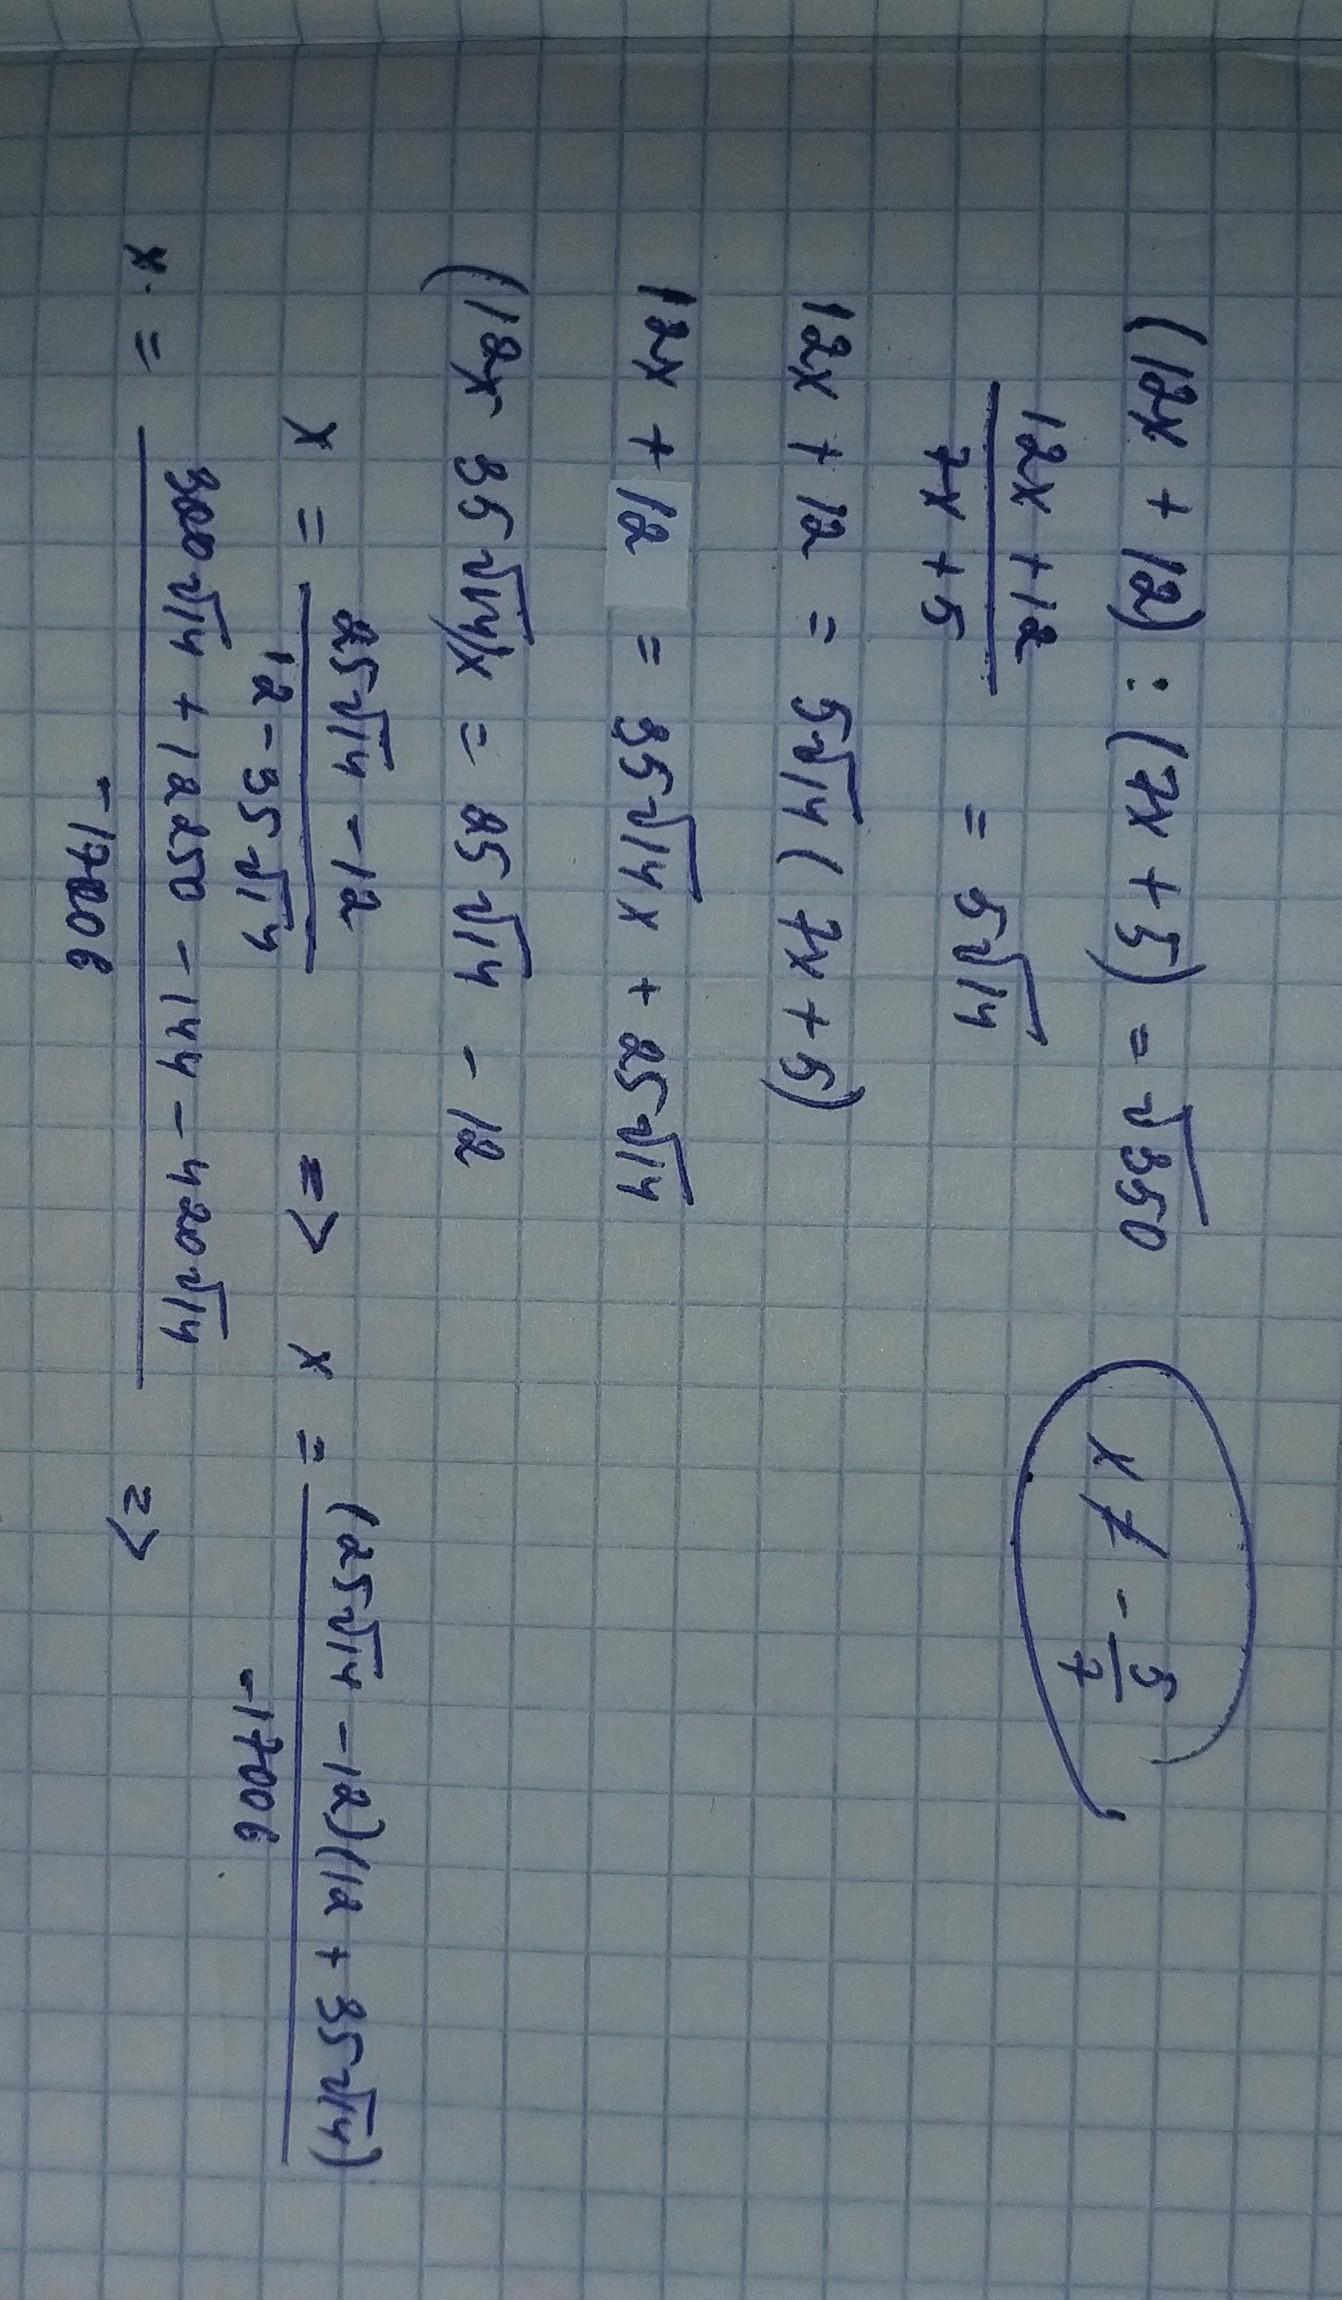 (12x + 12) : (7x + 5) = √350
x ≠ - 5/7
12x + 12 / 7x + 5 = 5√14
12x + 12 = 5√14 ( 7x + 5)
12x + 12 = 35√14 x + 25√14
(12x 35√14)x = 25√14 - 12
x = 25√14 - 12 / 12 - 35√14 => x = (25√14 - 12)(12 + 35√14) / -17006
x = 300√14 + 12250 - 144 - 420√14 / -17006 =>